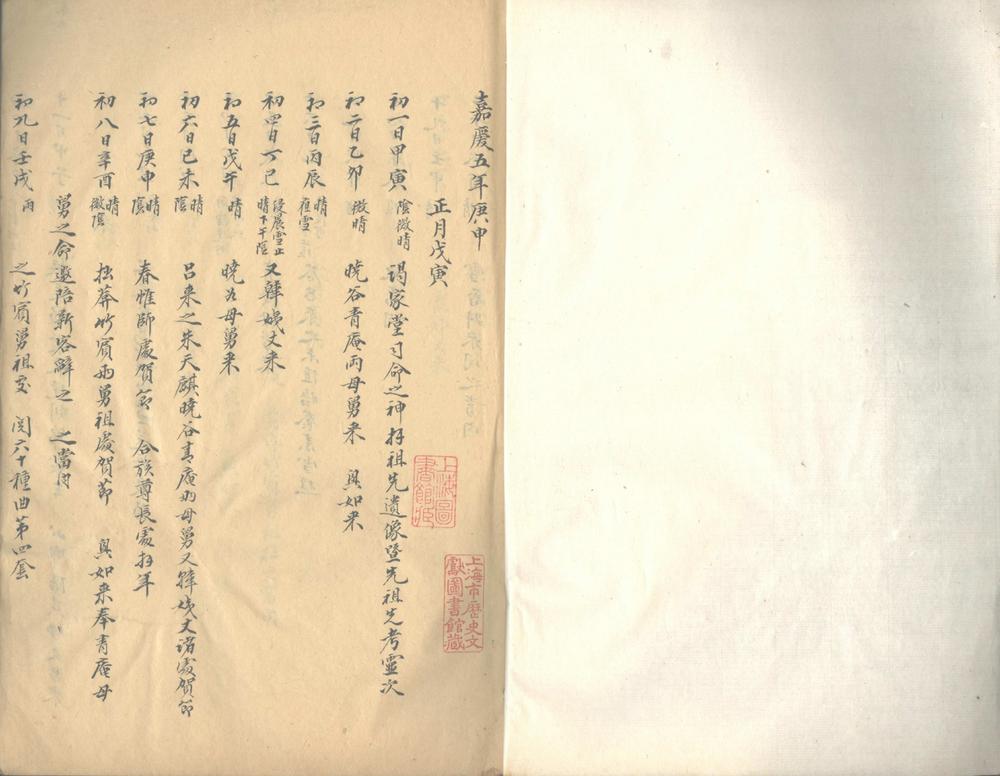 嘉慶五年庚申
正月戊寅
初一日甲寅 陰微晴 謁家堂司命之神拜祖先遺像暨先祖先考靈次
初二日乙卯 微晴 曉谷青庵兩母舅来 與如来
初三日丙辰 晴 雪
初四日丁巳 晨雪止晴下午陰 又韓姨丈来
初五日戊午 晴 曉九母舅来
初六日己未 晴陰 呂来之朱天麒曉谷青庵兩母舅又韓姨丈諸處賀節
初七日庚申 晴陰 春帷師處賀節 合族尊長處拜年
初八日辛酉 晴微陰 拙莽竹賓兩舅祖處賀節 與如来奉青庵母
舅之命邀陪新客辭之 之當内
初九日壬戌 雨 之竹賓舅祖家 閱六十種曲第四套
上海圖書館所
上海市歷史文獻圖書館藏